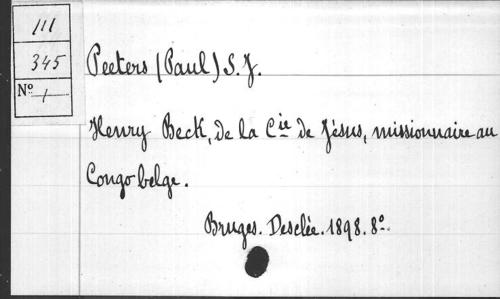 III
345
Nº 1
Peeters (Paul) S.J.
Henry Beck, de la Cie de Jésus, missionnaire au
Congo belge.
Bruges. Desclée. 1898. 8º.